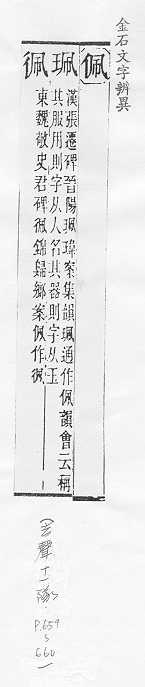 金石文字辨異
佩
珮
漢張遷碑晉陽珮瑋案集韻珮通作佩韻會云稱
其服用則字从人名其器則字从玉
東魏敬史君碑錦歸鄉案佩作
P.659
660